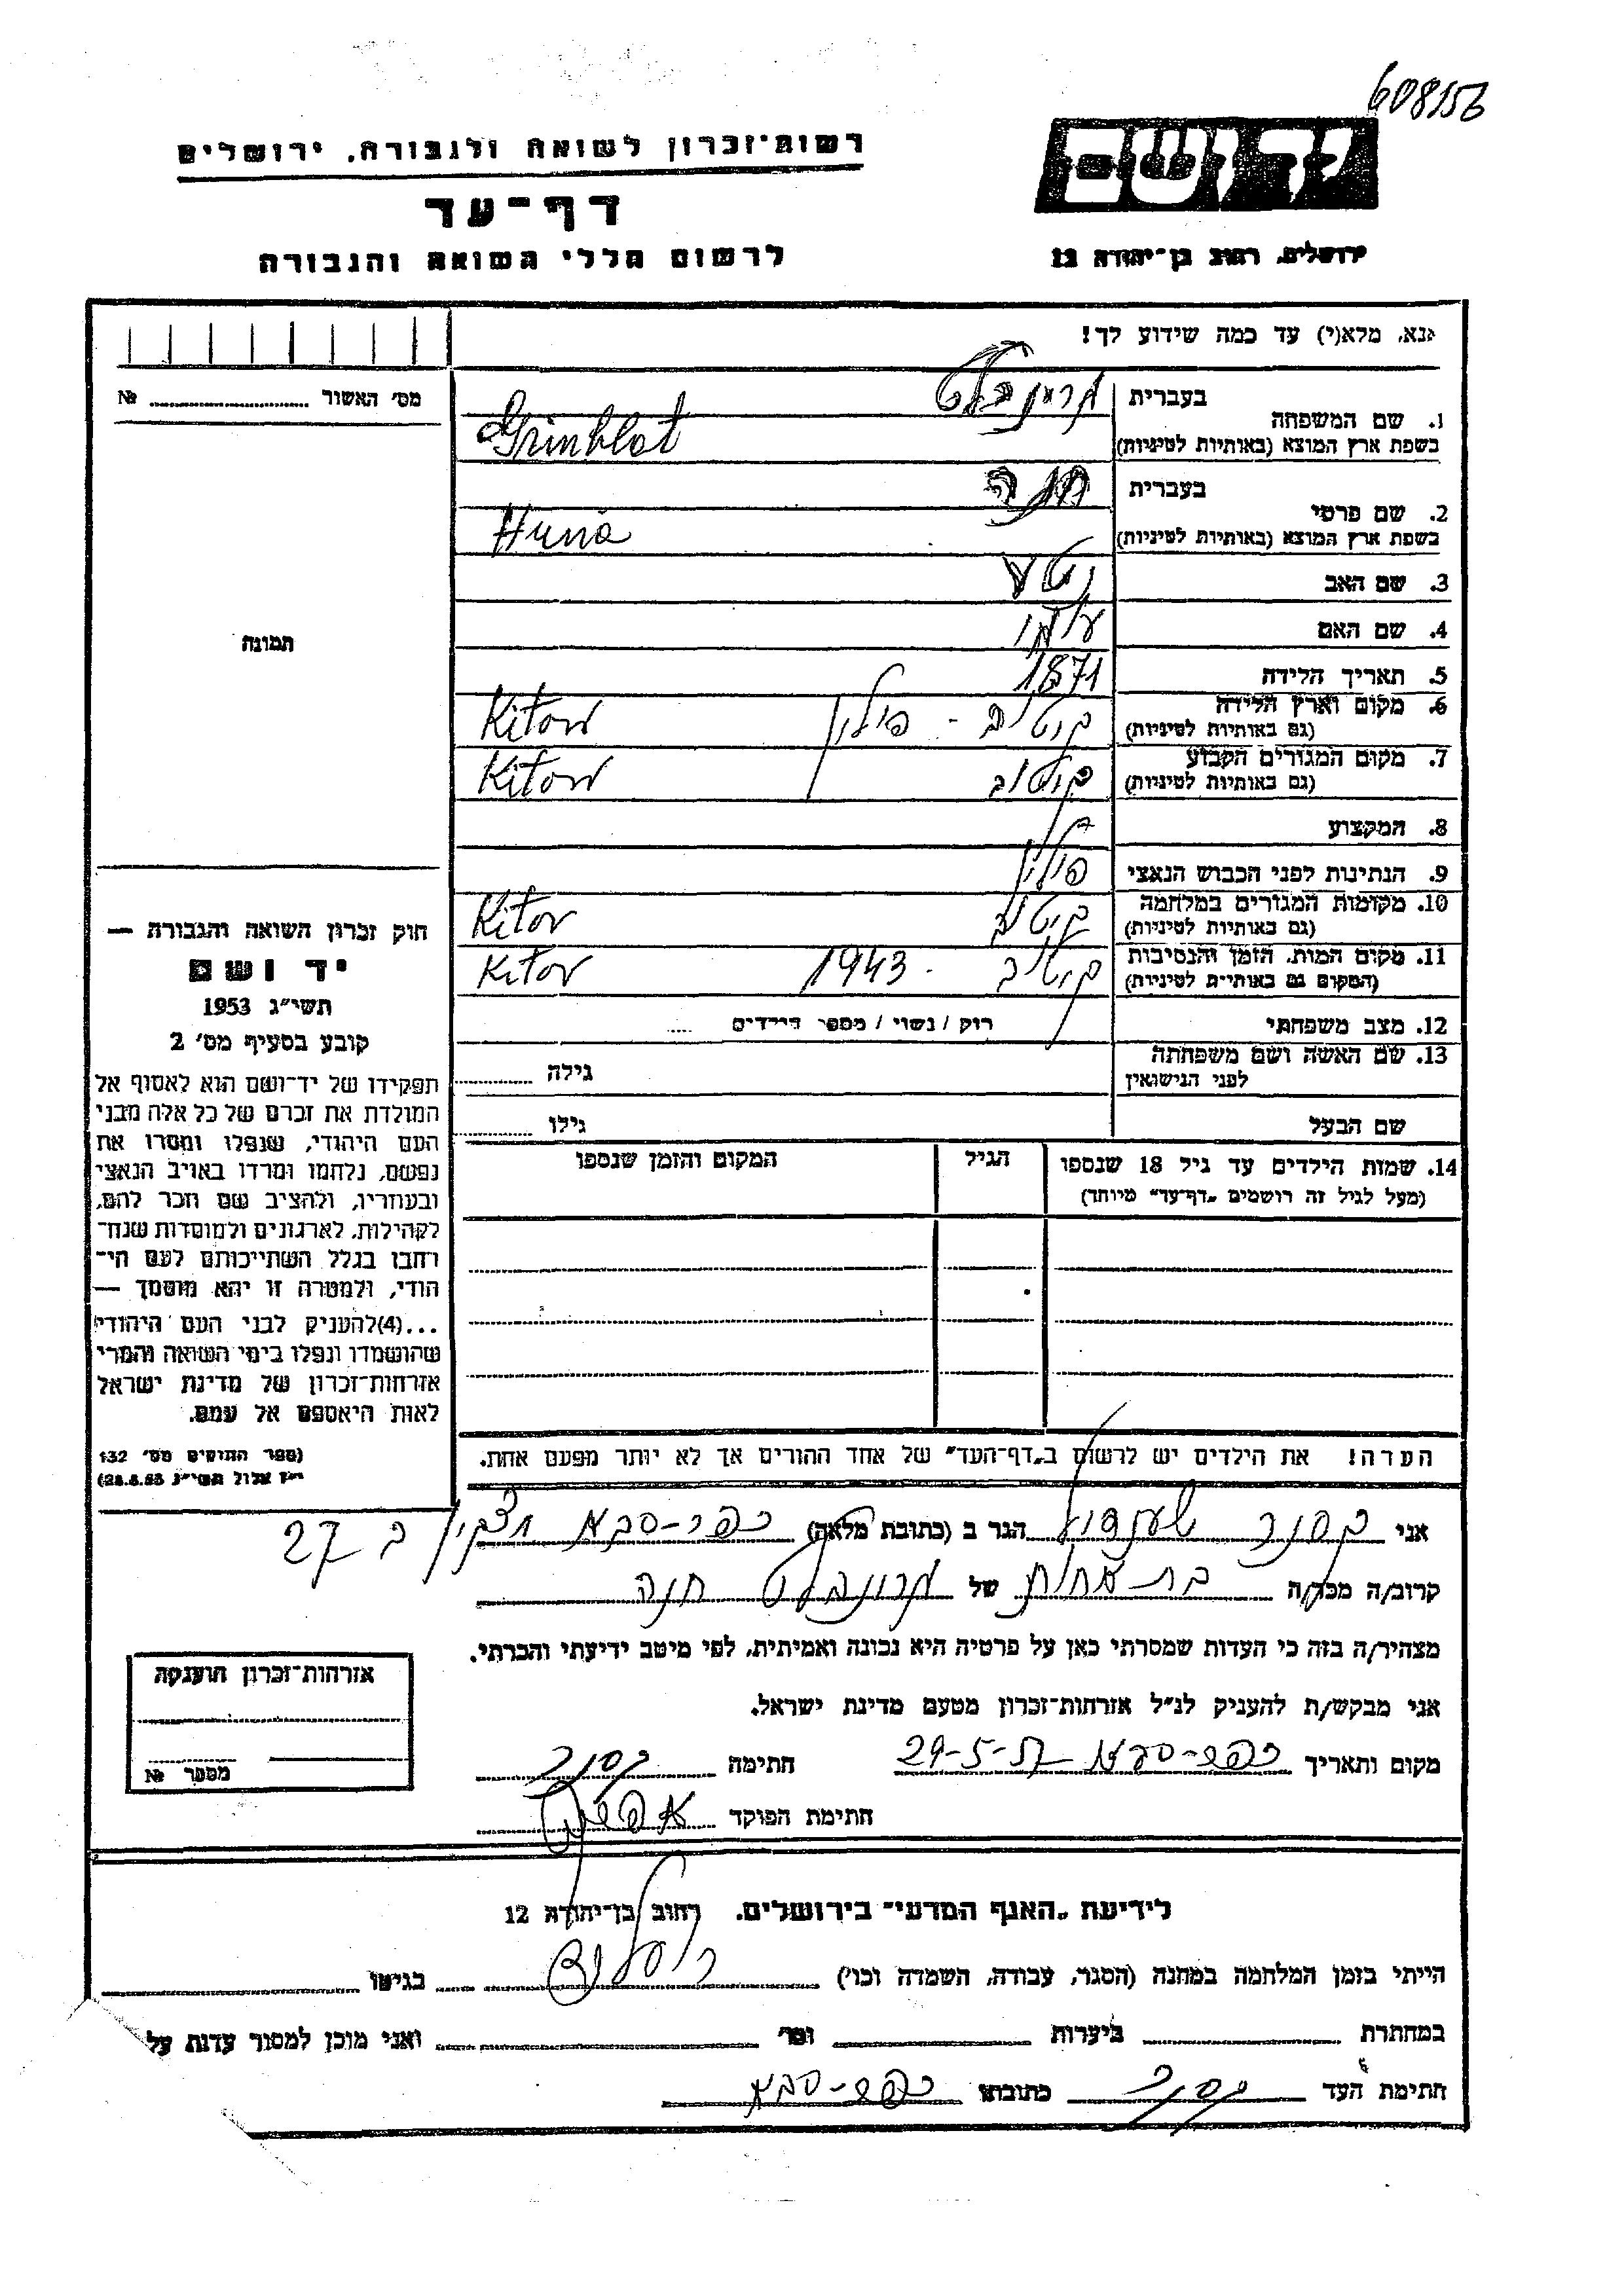 608156
יד ושם
רשות־זכרון לשואה ולגבורה, ירושלים
דף־עד
לרשום חללי השואה והגבורה
ירושלים, רחוב בן־יהודה 12
נא, מלא(י) עד כמה שידוע לך!
מס׳ האשור № 
1. שם המשפחה
בעברית גרינבלט
בשפת ארץ המוצא (באותיות לטיניות) Grinblat
2. שם פרטי
בעברית חנה
בשפת ארץ המוצא (באותיות לטיניות) Huna
3. שם האב נטע
4. שם האם
5. תאריך הלידה 1871
6. מקום וארץ הלידה קיטוב - פולין Kitow
(גם באותיות לטיניות)
7. מקום המגורים הקבוע קיטוב Kitow
(גם באותיות לטיניות)
8. המקצוע
9. הנתינות לפני הכבוש הנאצי פולין
10. מקומות המגורים במלחמה קיטוב Kitov
(גם באותיות לטיניות)
11. מקום המות, הזמן והנסיבות קיטוב - 1943 Kitov
(המקום גם באותיות לטיניות)
12. מצב משפחתי רוק / נשוי / מספר הילדים
13. שם האשה ושם משפחתה גילה
לפני הנישואין
שם הבעל גילו
14. שמות הילדים עד גיל 18 שנספו הגיל המקום והזמן שנספו
(מעל לגיל זה רושמים „דף־עד״ מיוחד)
הערה! את הילדים יש לרשום ב„דף־העד״ של אחד ההורים אך לא יותר מפעם אחת.
תמונה
חוק זכרון השואה והגבורה —
יד ושם
תשי״ג 1953
קובע בסעיף מס׳ 2
תפקידו של יד־ושם הוא לאסוף אל
המולדת את זכרם של כל אלה מבני
העם היהודי, שנפלו ומסרו את
נפשם, נלחמו ומרדו באויב הנאצי
ובעוזריו, ולהציב שם וזכר להם,
לקהילות, לארגונים ולמוסדות שנח־
רבו בגלל השתייכותם לעם הי־
הודי, ולמטרה זו יהא מוסמך —
...(4) להעניק לבני העם היהודי
שהושמדו ונפלו בימי השואה והמרי
אזרחות־זכרון של מדינת ישראל
לאות היאספם אל עמם.
(ספר החוקים מס׳ 132
י״ז אלול תשי״ג 28.8.53)
אני הגר ב (כתובת מלאה) כפר-סבא ב 27
קרוב/ה מכר/ה בת אחות של גרינבלט חנה
מצהיר/ה בזה כי העדות שמסרתי כאן על פרטיה היא נכונה ואמיתית, לפי מיטב ידיעתי והכרתי.
אני מבקש/ת להעניק לנ״ל אזרחות־זכרון מטעם מדינת ישראל.
מקום ותאריך כפר-סבא 29-5-57 חתימה
חתימת הפוקד
אזרחות־זכרון הוענקה
מספר №
לידיעת „האגף המדעי״ בירושלים, רחוב בן־יהודה 12
הייתי בזמן המלחמה במחנה (הסגר, עבודה, השמדה וכו׳) בגיטו
במחתרת ביערות וכו׳ ואני מוכן למסור עדות על
חתימת העד כתובתו כפר-סבא